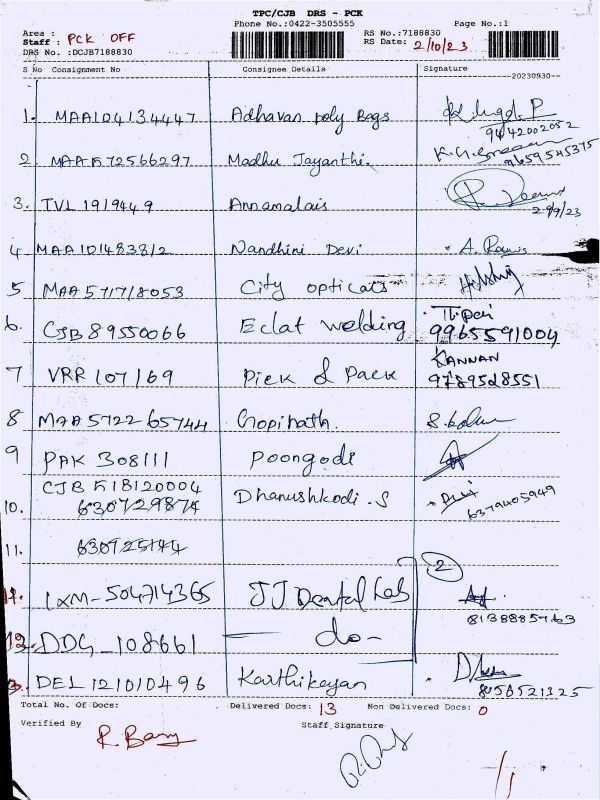 TPC/CJB DRS - PCK
Phone No.:0422-3505555 Page No.:1
Area :
Staff : PCK OFF RS No.:7188830
DRS No. :DCJB7188830 RS Date: 2/10/23
S No Consignment No Consignee Details Signature
20230930
1. MAA104134447 Adhavan poly Bags
9442002052
2 MAA572566297 Madhu Jayanthi. 9659545375
3. TVL 1919449 Annamalais
29/9/23
4 MAA101483812 Nandhini Devi
5 MAA571718053 City opticals
6. CJB89550066 Eclat welding 9965591004
7 VRR 107169 Pick & Pack KANNAN
9789528551
8 MAA572265744 Gopinath.
9 PAK 308111 Poongodi
CJB 518120004
10. 630729874 Dhanushkodi .S 6379405949
11. 630725144
2
11. IXM-504714365 JJ Dental Lab
8138885763
12. DDG-108661 — do -
3. DEL 121010496 Karthikeyan
Total No. Of Docs: Delivered Docs: 13 Non Delivered Docs: 0
Verified By Staff Signature